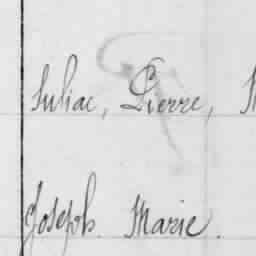 Suliac, Pierre,
Joseph. Marie.